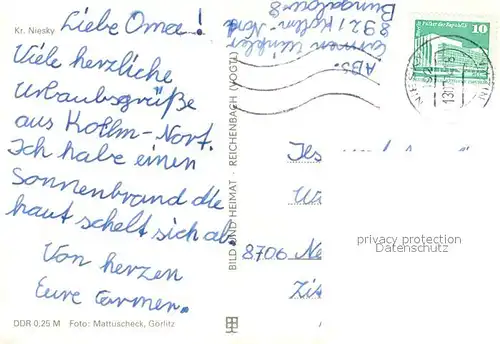 Kr. Niesky
Liebe Oma!
Viele herzliche
Urlaubsgrüße
aus Kollm-Nort.
Ich habe einen
Sonnenbrand die
haut schelt sich ab
Von herzen
Eure Carmen.
DDR 0,25 M Foto: Mattuscheck, Görlitz
BILD UND HEIMAT · REICHENBACH (VOGTL)
Abs.
Carmen Winkler
8921 Kollm-Nord
Bungalow 8
10
8706 Ne
privacy protection
Datenschutz